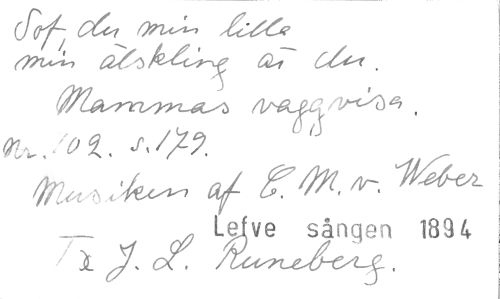 Sof, du min lilla
min älskling är du.
Mammas vaggvisa.
Nr. 102. s. 179.
Musiken af C. M. v. Weber
Lefve sången 1894
Tx J. L. Runeberg.